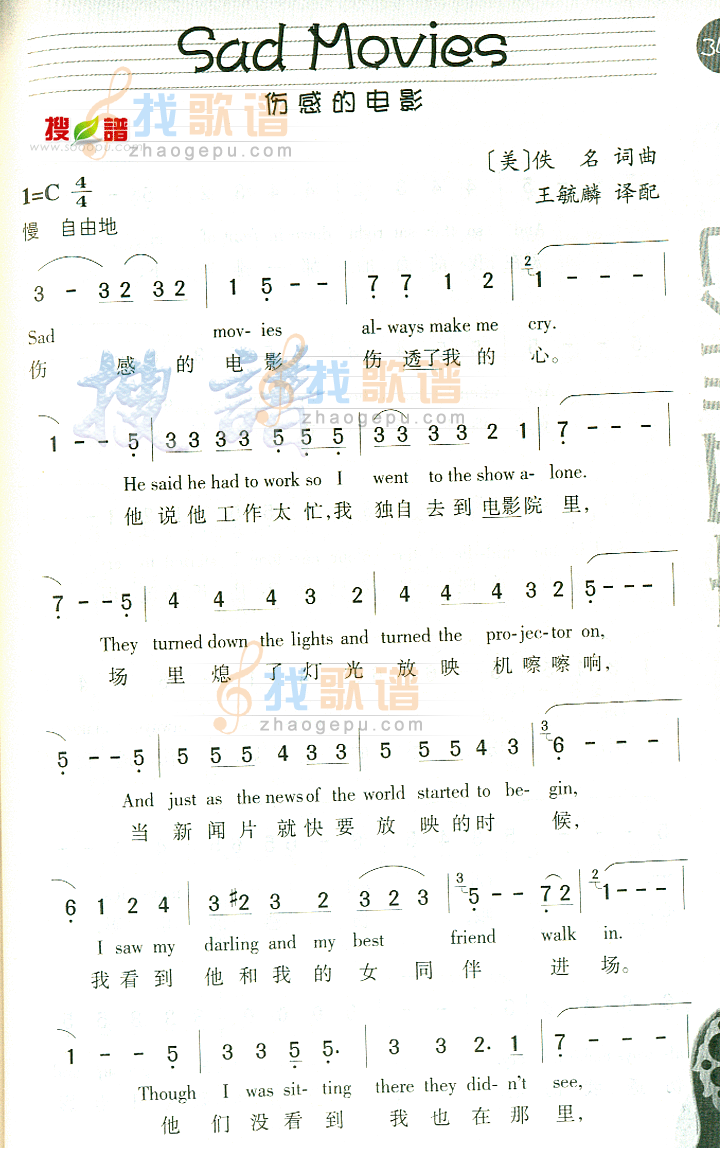 Sad Movies
伤感的电影
搜谱
www.sooopu.com
找歌谱
zhaogepu.com
〔美〕佚 名 词曲
王毓麟 译配
1=C 4/4
慢 自由地
3 - 3 2 3 2 | 1 5 - - | 7 7 1 2 | 2 1 - - -
Sad mov- ies al- ways make me cry.
伤 感 的 电 影 伤 透了我 的 心。
搜 谱
找歌谱
zhaogepu.com
1 - - 5 | 3 3 3 3 5 5 5 | 3 3 3 3 2 1 | 7 - - -
He said he had to work so I went to the show a- lone.
他 说 他 工 作 太 忙,我 独自 去 到 电影院 里,
7 - - 5 | 4 4 4 3 2 | 4 4 4 4 3 2 | 5 - - -
They turned down the lights and turned the pro-jec-tor on,
场 里 熄 了 灯 光 放 映 机 嚓 嚓 响,
找歌谱
zhaogepu.com
5 - - 5 | 5 5 5 4 3 3 | 5 5 5 4 3 | 3 6 - - -
And just as the news of the world started to be- gin,
当 新 闻 片 就 快 要 放 映 的 时 候,
6 1 2 4 | 3 #2 3 2 | 3 2 2 | 3 5 - - 7 2 | 2 1 - - -
I saw my darling and my best friend walk in.
我 看 到 他 和 我 的 女 同 伴 进 场。
1 - - 5 | 3 3 5 5. | 3 3 2. 1 | 7 - - -
Though I was sit- ting there they did- n't see,
他 们 没 看 到 我 也 在 那 里,